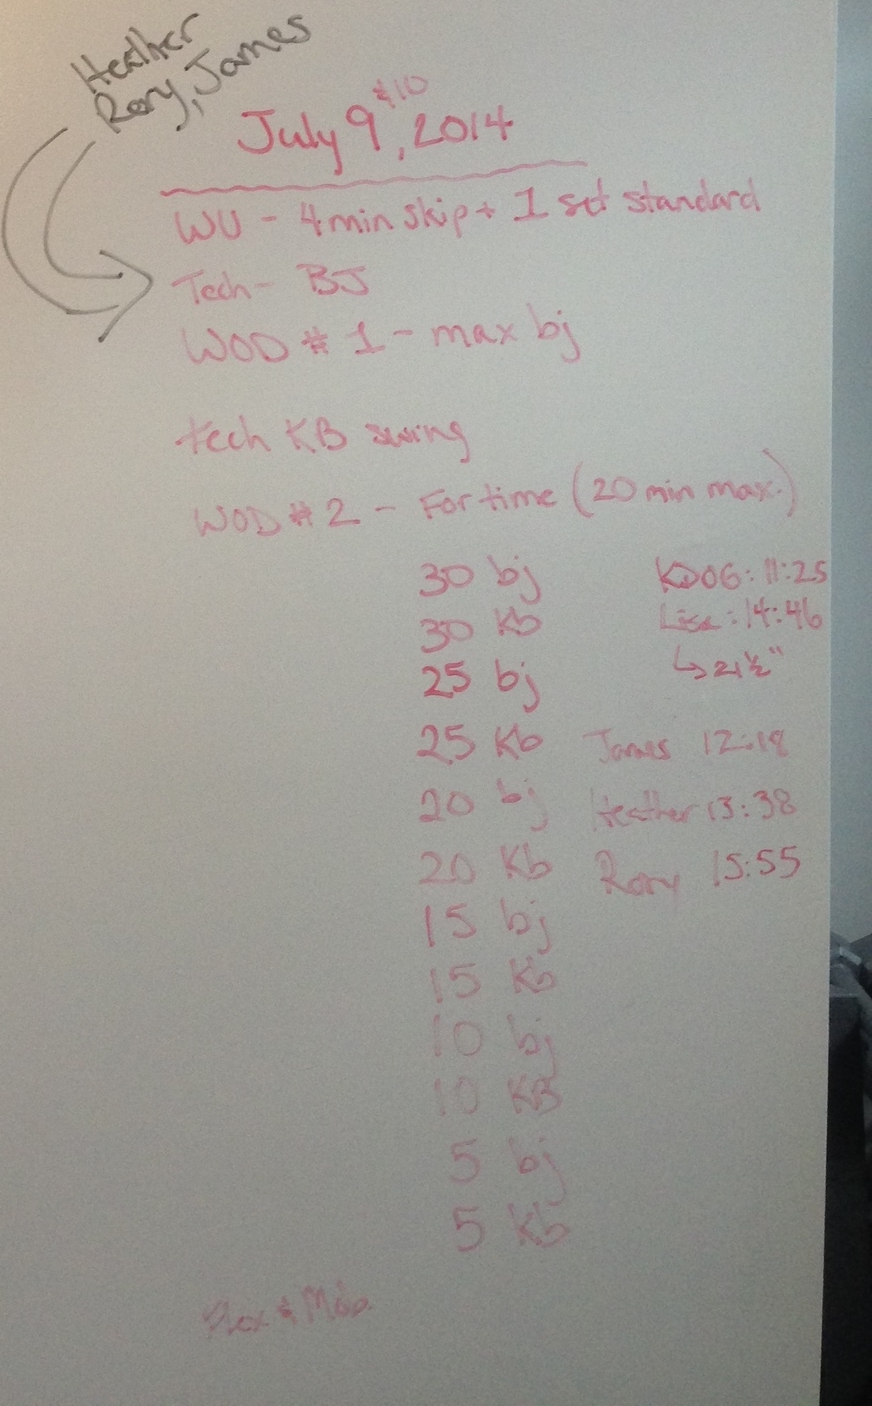 Heather
Rory, James
July 9 & 10, 2014
WU - 4 min skip + 1 set standard
Tech - BJ
WOD # 1 - max bj
tech KB swing
WOD # 2 - For time (20 min max.)
30 bj
30 Kb
25 bj
25 Kb
20 bj
20 Kb
15 bj
15 Kb
10 bj
10 KB
5 bj
5 Kb
KDOG: 11:25
Lisa: 14:46
↳ 21½"
James 12:18
Heather 13:38
Rory 15:55
Flex & Mob.